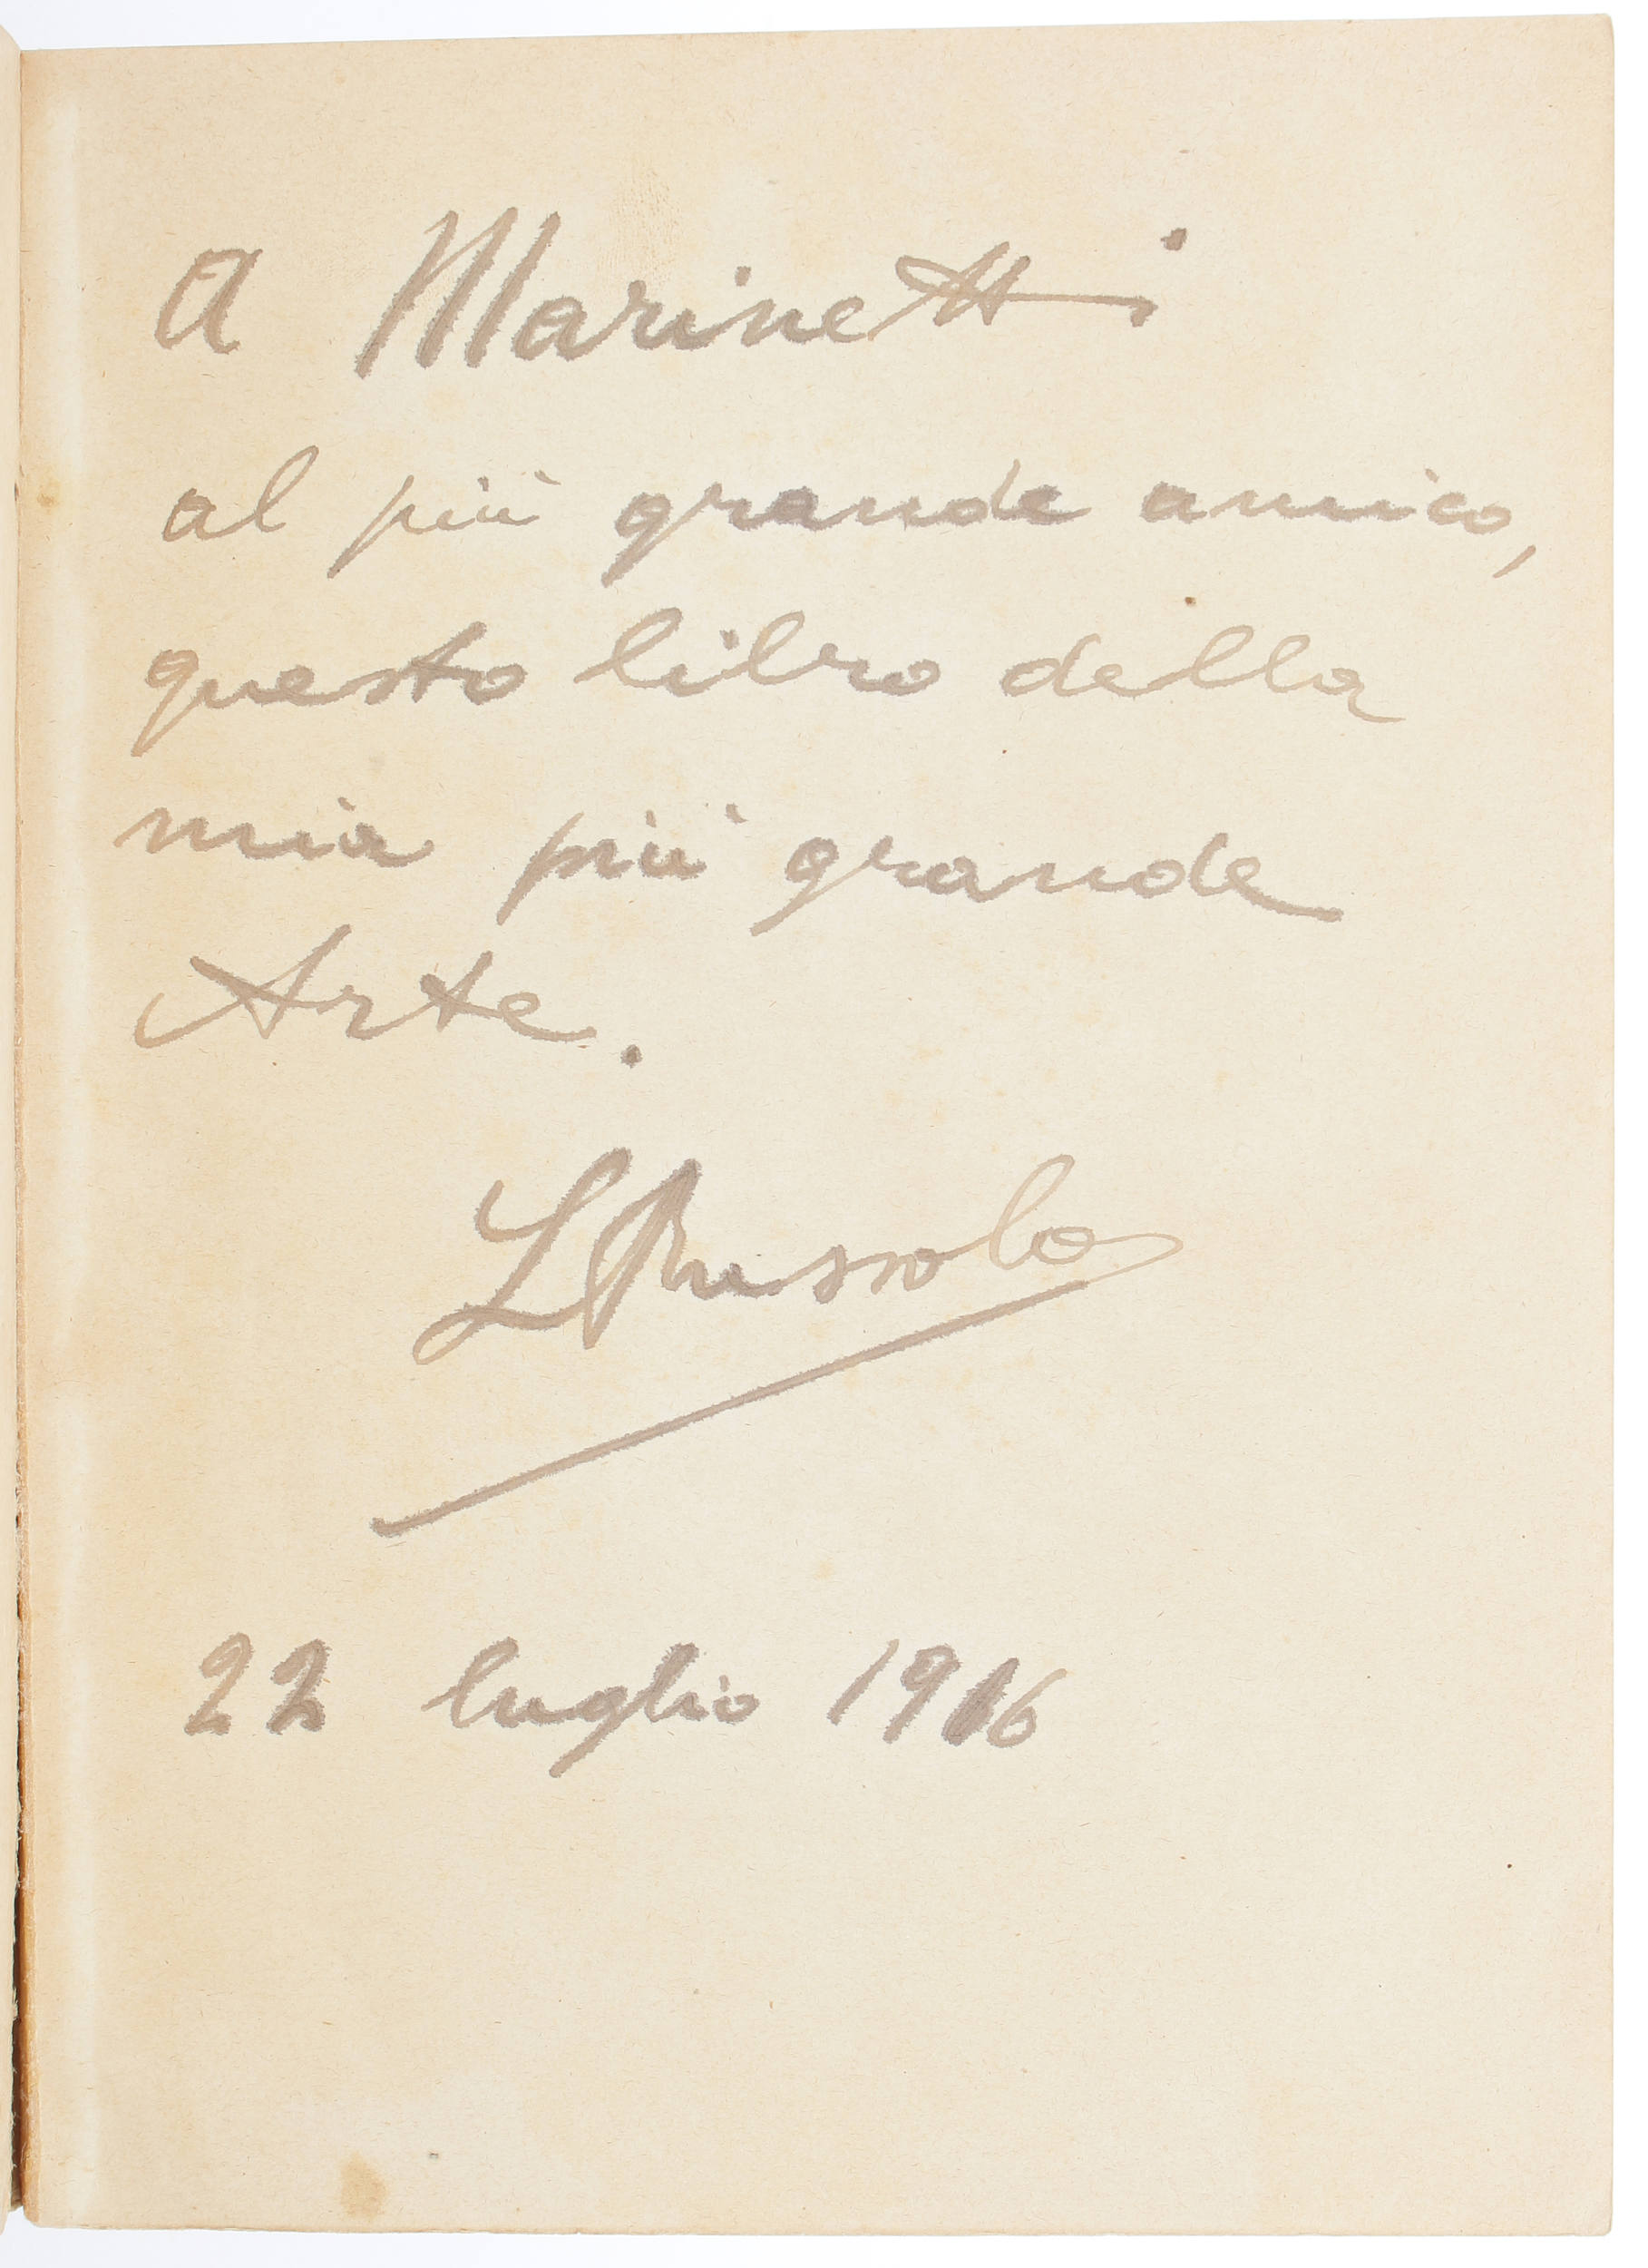 A Marinetti
al più grande amico,
questo libro della
mia più grande
Arte.
LRussolo
22 luglio 1916